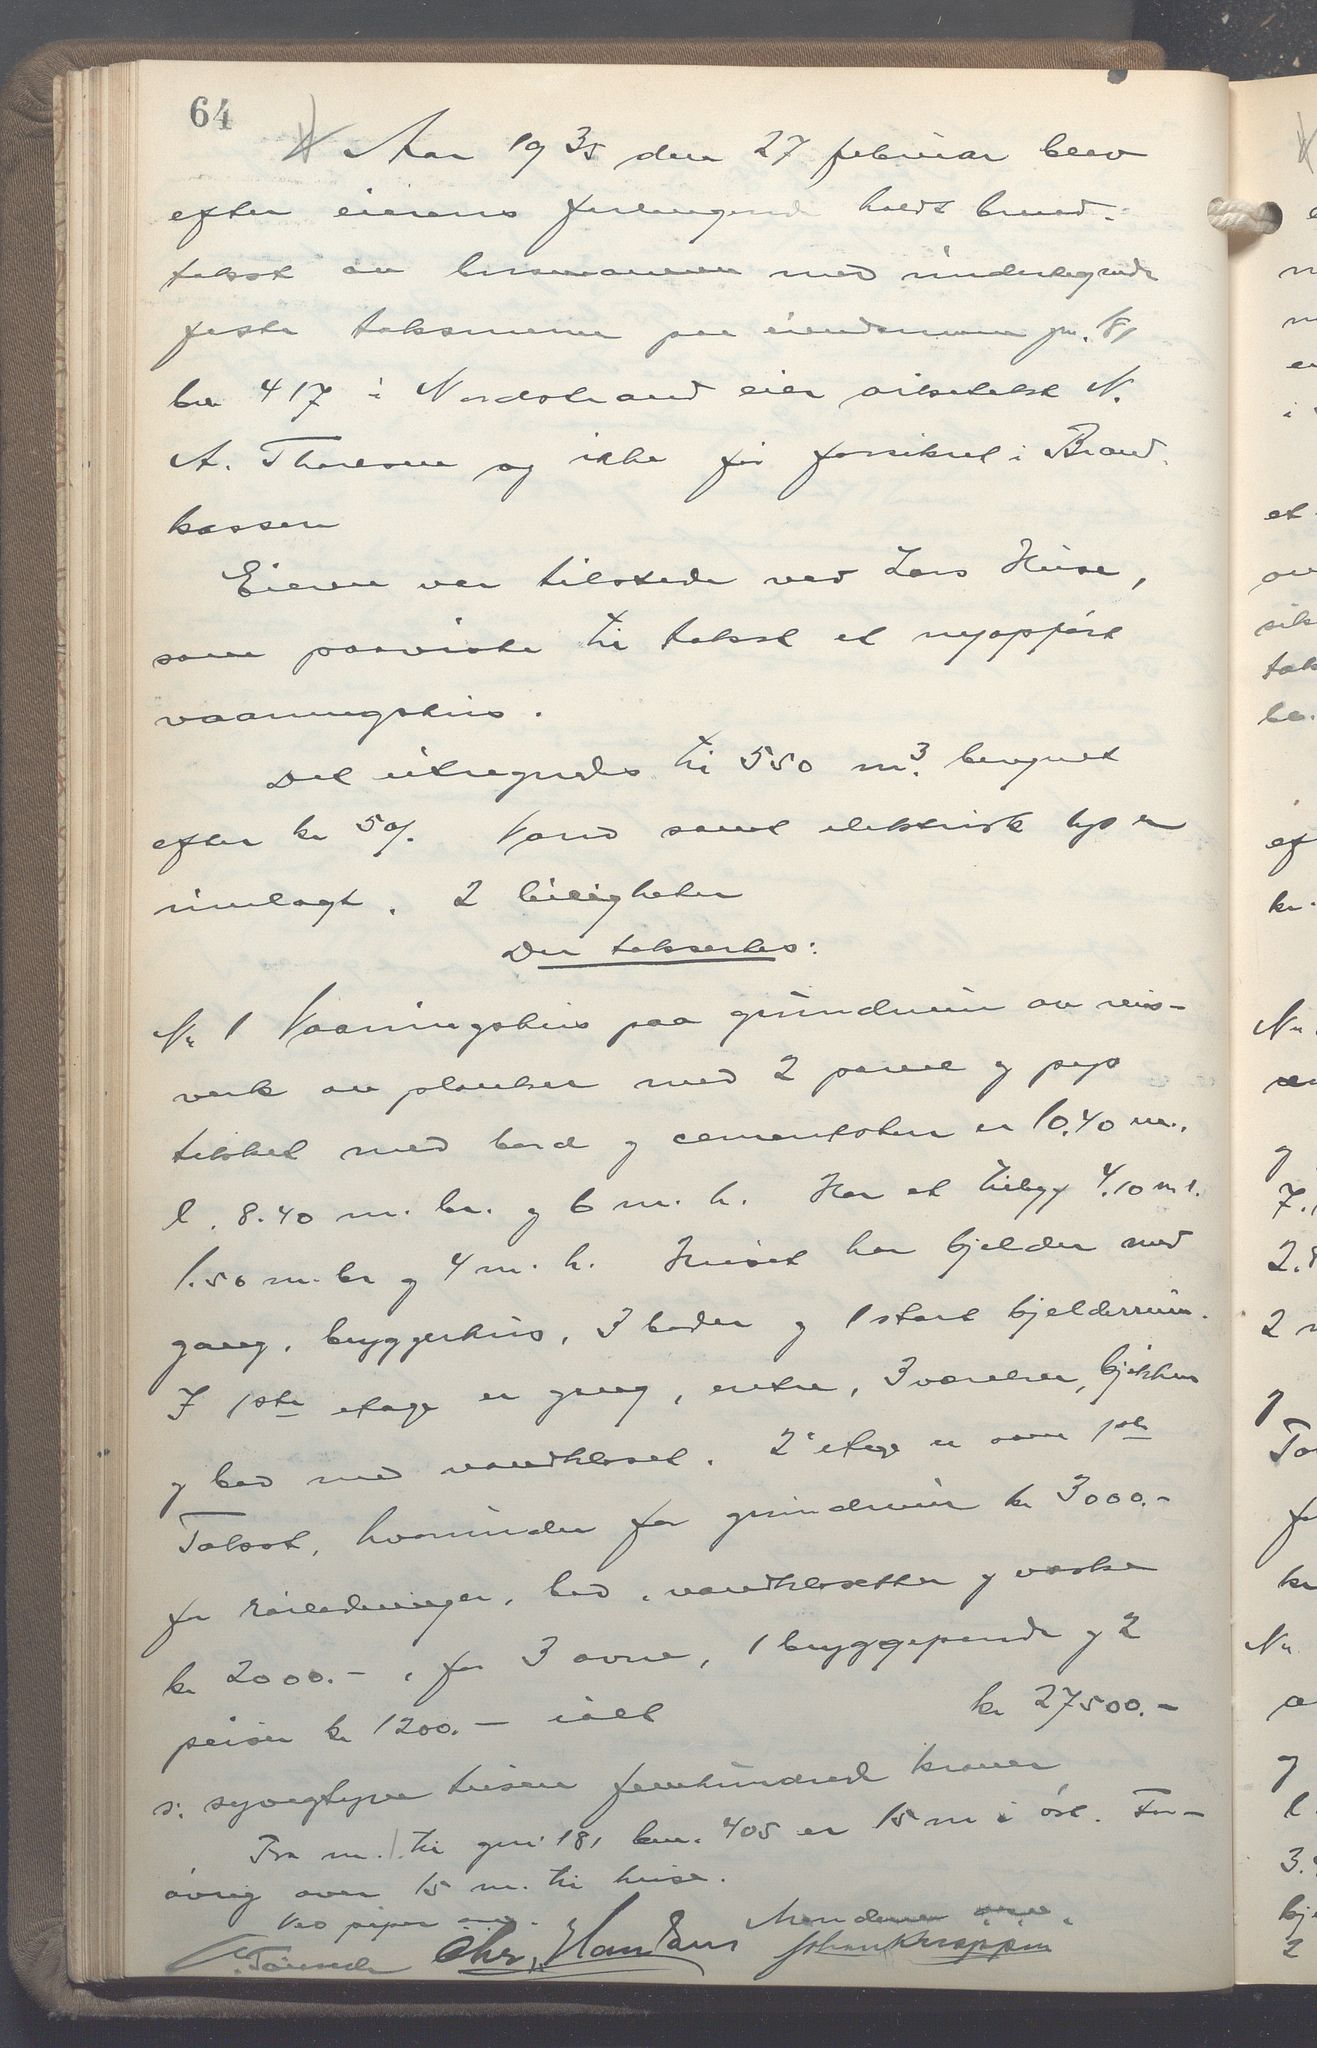 64
Aar 1935 den 27 februar blev
efter eierens forlangende holdt brand-
takst av lensmannen med undertegnede
faste taksmenn paa eiendommen gn. 181
bn 417 i Nordstrand eier arkitekt N.
A. Thoresen og ikke før forsikret i Brand
kassen
Eieren var tilstede ved Lars Huse,
som paaviste til takst et nyopført
vaaningshus.
Det utregnedes til 550 m3. beregnet
efter kr 50/. Vand samt elektrisk lys er
innlagt. 2 leiligheter
Der takseres:
Nr 1 Vaaningshus paa grundmur av reis-
verk av planker med 2 panel og papp
tekket med bord og cementsten er 10.40 m.
l. 8.40 m. br. og 6 m. h. Har et tilbygg 4.10 m l.
1.50 m. br og 4 m. h. Huset har kjelder med
gang, bryggerhus, 3 boder og 1 stort kjelderrum.
I 1ste etage er gang, entre, 3 værelser, kjøkken
og bad med vandkloset. 2 etage er som 1ste
Takst, hvorunder for grundmur kr 3000.-
for rørledninger, bad, vandklosetter og vasker
kr 2000.-, for 3 ovne, 1 bryggepande og 2
peiser kr 1200.- ialt kr 27500.-
s: syvogtyve tusen femhundrede kroner
Fra nr. 1 til gnr 181 bnr. 405 er 15 m i øst. For-
øvrig over 15 m. til huse.
Ved piper
Chr. Hansen Johan Knappen